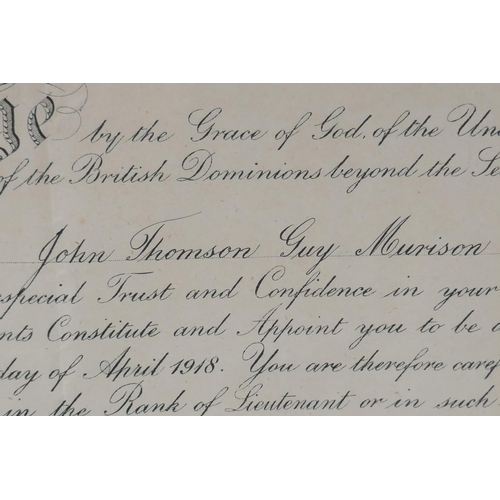 by the Grace of God, of the Un
of the British Dominions beyond the Se
John Thomson Guy Murison
special Trust and Confidence in your
nts Constitute and Appoint you to be a
day of April 1918. You are therefore caref
in the Rank of Lieutenant or in such